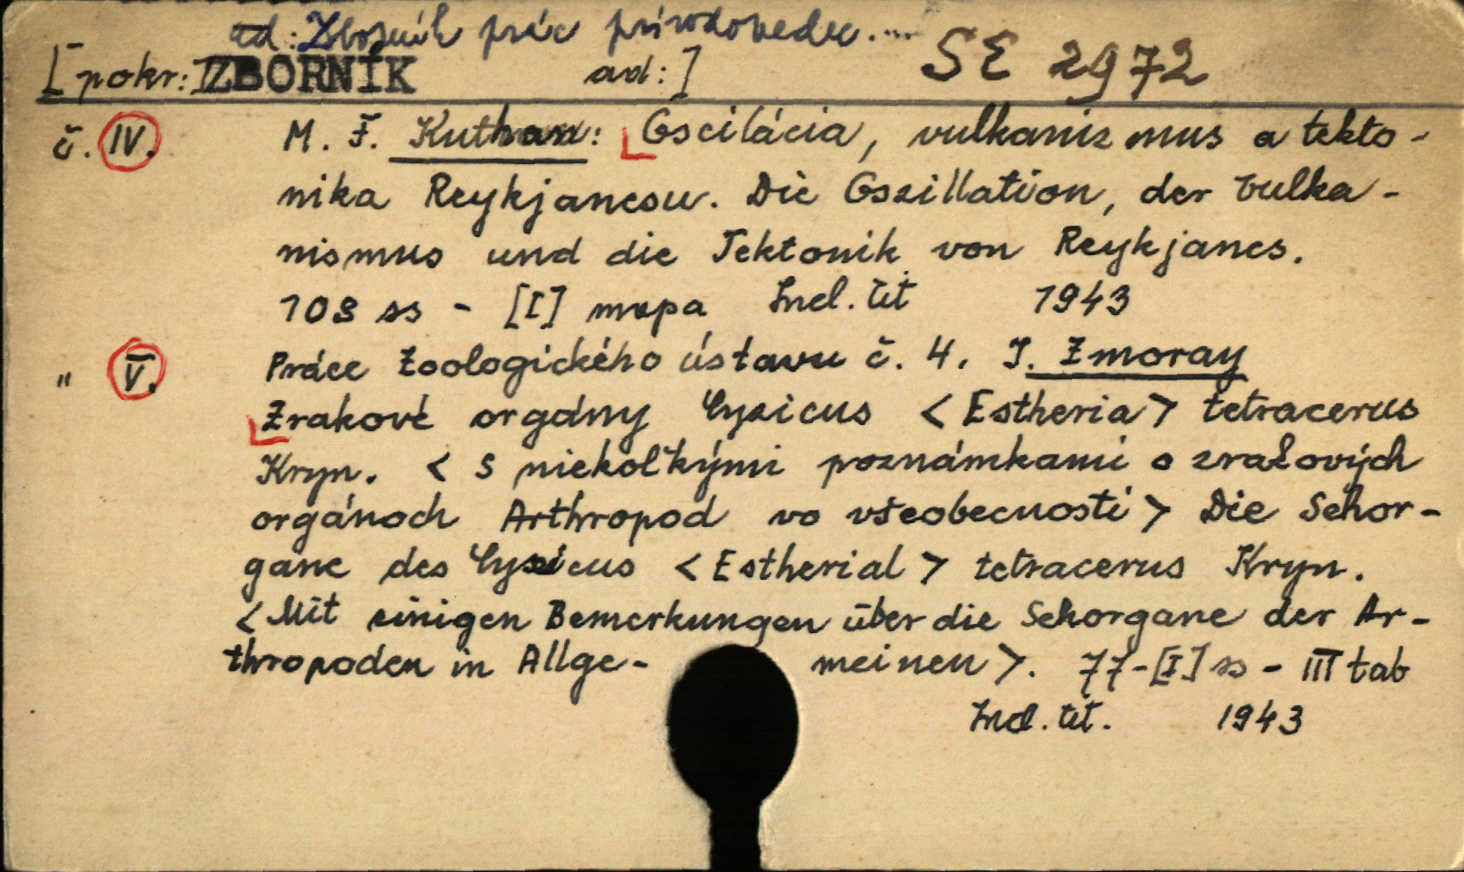 ad: Zborník prác prírodovedec....
[pokr: ZBORNÍK ad:] SE 2972
č. IV. M. F. Kuthan: Oscilácia, vulkanizmus a tekto-
nika Reykjanesu. Die Oszillation, der Vulka-
nismus und die Tektonik von Reykjanes.
108 ss - [I] mapa Incl. tit 1943
" V. Práce Zoologického ústavu č. 4. I. Zmoray
Zrakové orgány Cyzicus < Estheria > tetracerus
Kryn. < S niekoľkými poznámkami o zrakových
orgánoch Arthropod vo všeobecnosti > Die Sehor-
gane des Cyzicus < Estherial > tetracerus Kryn.
< Mit einigen Bemerkungen über die Sehorgane der Ar-
thropoden in Allge- meinen >. 77-[I] ss - III tab
Incl. tit. 1943